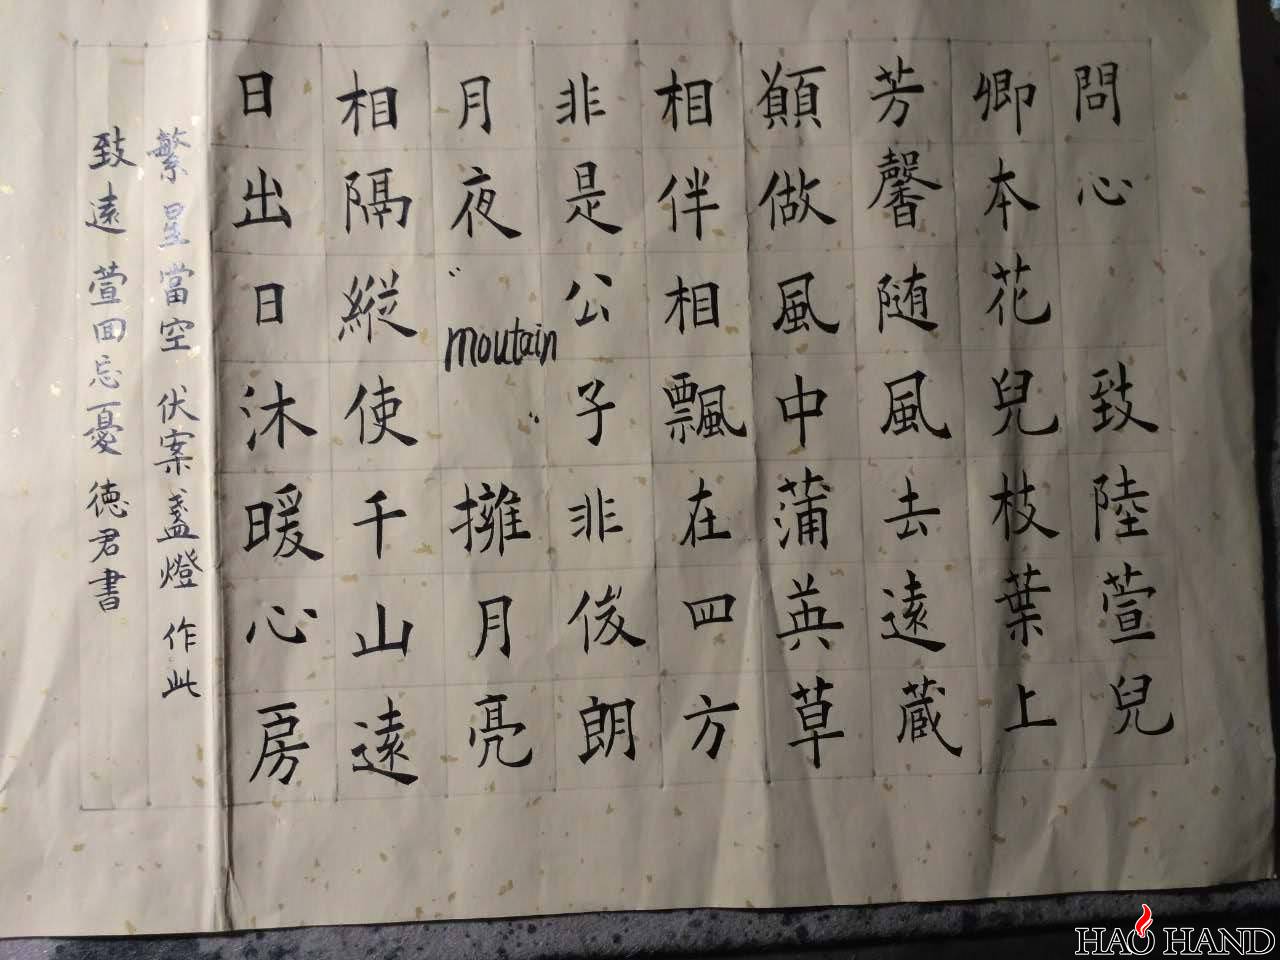 問心 致陸萱兒
卿本花兒枝葉上
芳馨随風去遠蔵
顛做風中蒲英草
相伴相飄在四方
非是公子非俊朗
月夜“moutain”擁月亮
相隔縱使千山遠
日出日沐暖心房
繁星當空 伏案盞燈 作此
致遠 萱回忘憂 德君書
HAO HAND